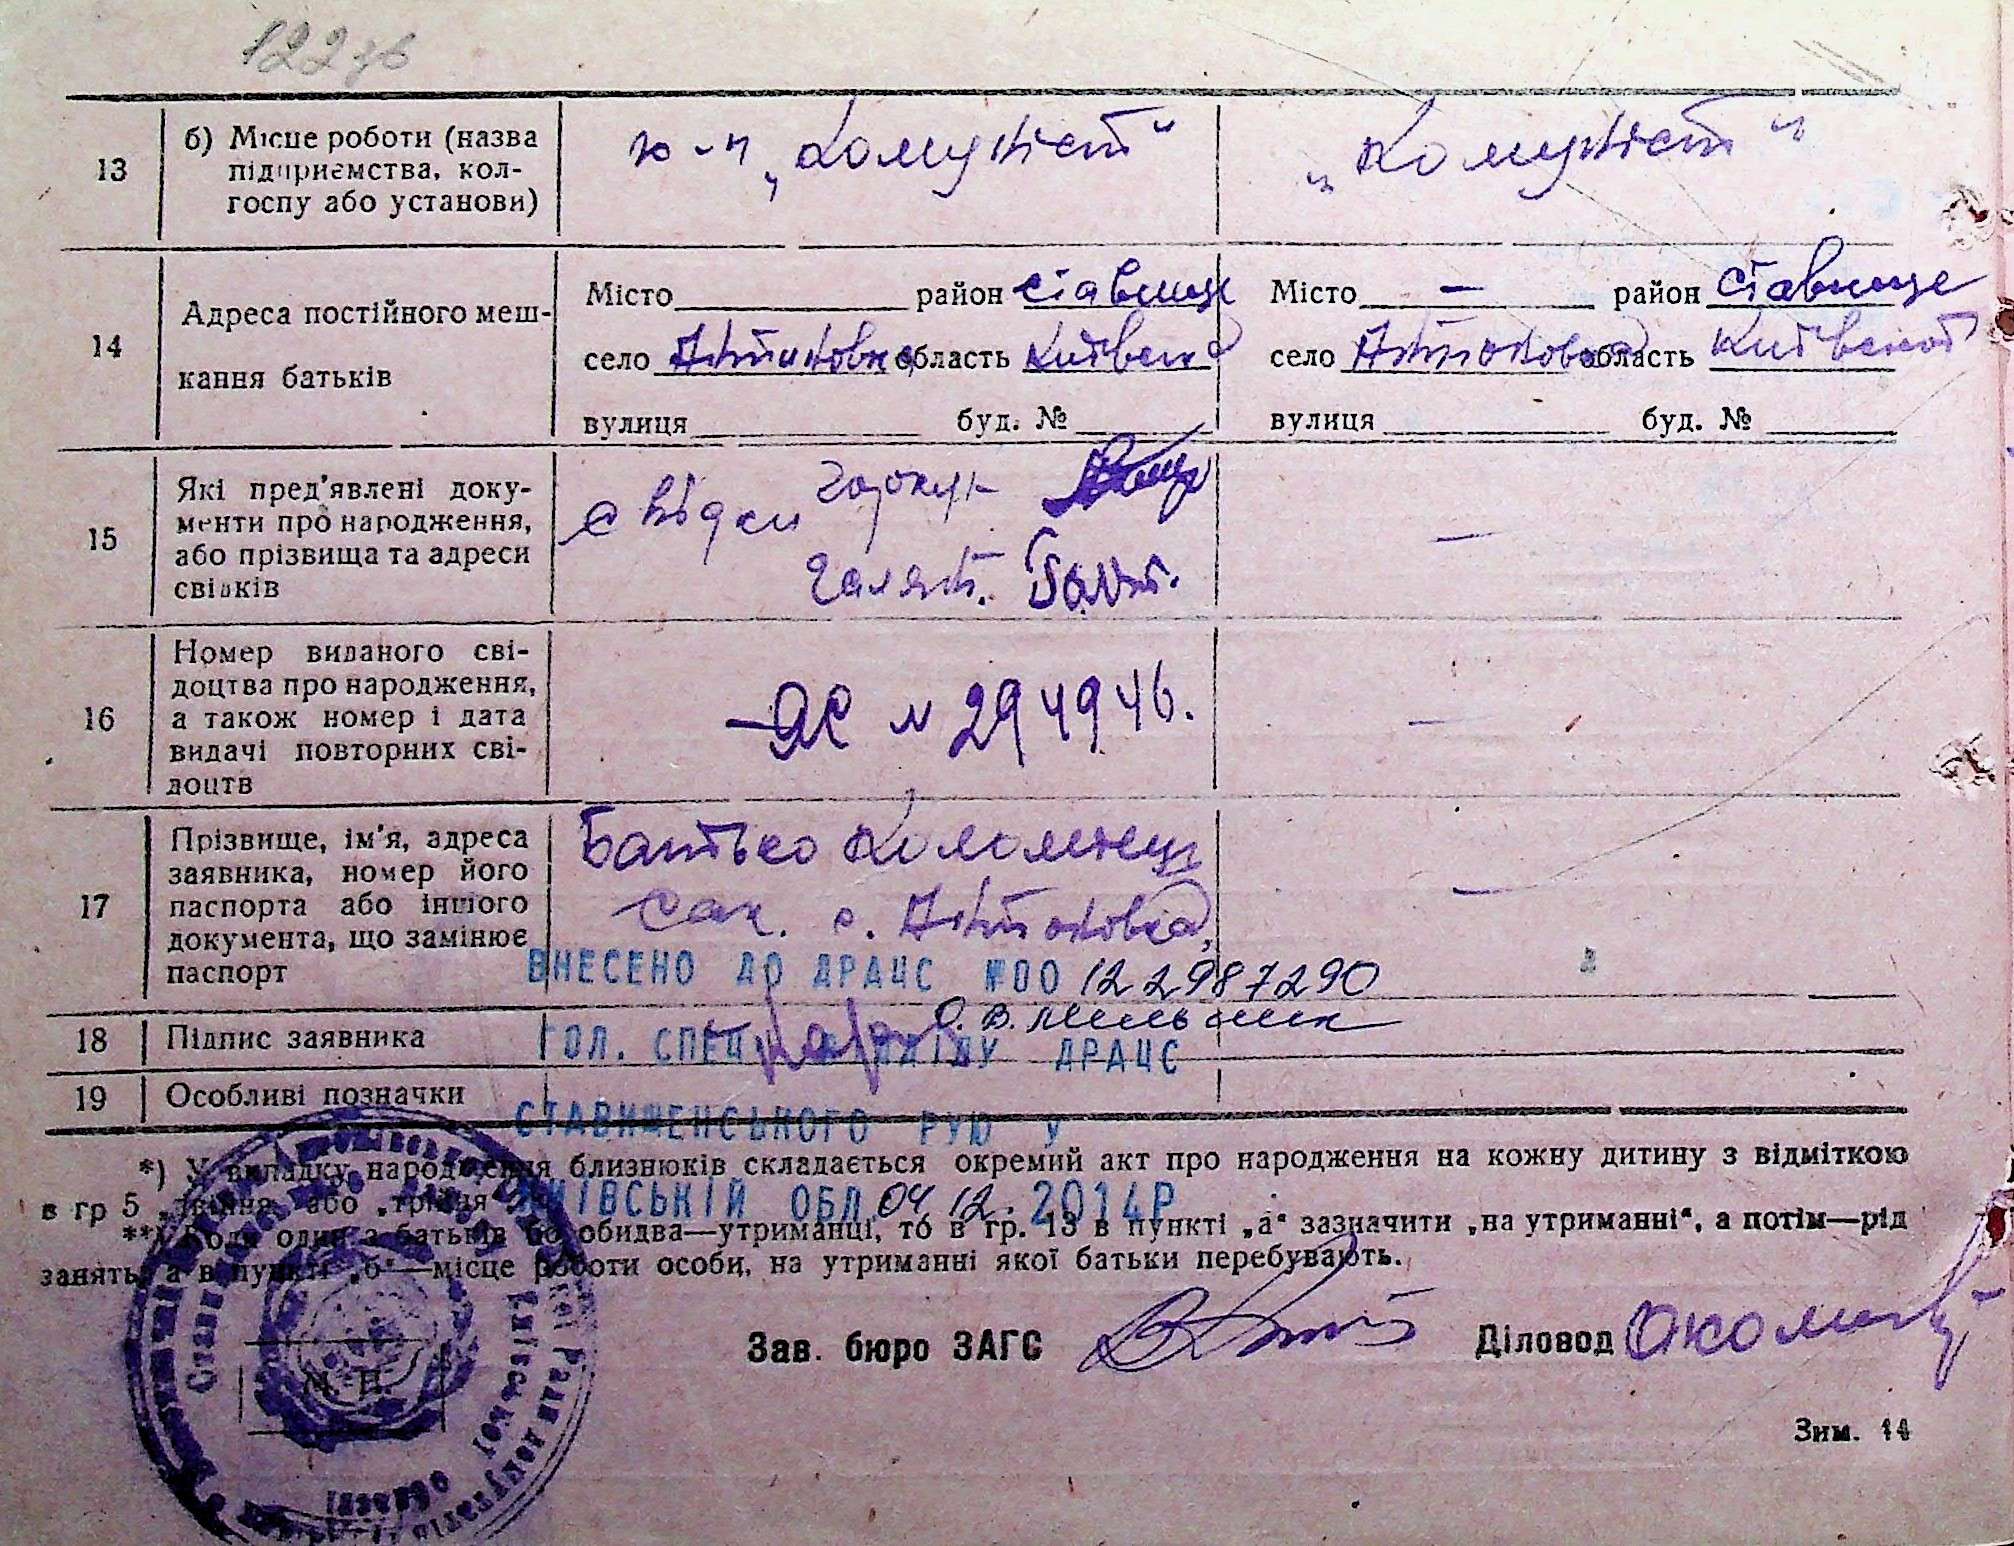 122 зв
13
б) Місце роботи (назва
підприємства, кол-
госпу або установи)
к-п „Комуніст“
„Комуніст“
14
Адреса постійного меш-
кання батьків
Місто район Ставище
село Антонівка область Київська
вулиця буд. №
Місто — район Ставище
село Антонівка область Київської
вулиця буд. №
15
Які пред'явлені доку-
менти про народження,
або прізвища та адреси
свідків
свідки
—
16
Номер виданого сві-
доцтва про народження,
а також номер і дата
видачі повторних сві-
доцтв
ЯС № 294946.
—
17
Прізвище, ім'я, адреса
заявника, номер його
паспорта або іншого
документа, що замінює
паспорт
Батько Коломієць
с. Антонівка
—
ВНЕСЕНО ДО ДРАЦС №00 122987290
О. В. Мельник
18
Підпис заявника
ГОЛ. СПЕЦ. ВІДДІЛУ ДРАЦС
19
Особливі позначки
СТАВИЩЕНСЬКОГО РУЮ У
*) У випадку народження близнюків складається окремий акт про народження на кожну дитину з відміткою
в гр 5 „двійня“ або „трійня“
КИЇВСЬКІЙ ОБЛ. 04.12.2014Р
**) Коли один з батьків або обидва—утриманці, то в гр. 13 в пункті „а“ зазначити „на утриманні“, а потім—рід
занять, а в пункті „б“—місце роботи особи, на утриманні якої батьки перебувають.
Зав. бюро ЗАГС
Діловод
М. П.
Київської області
Зим. 14